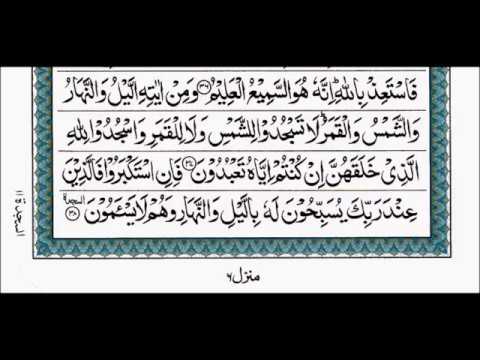 فَاسۡتَعِذۡ بِاللّٰهِؕ اِنَّهٗ هُوَ السَّمِيۡعُ الۡعَلِيۡمُ ۝۳۶ وَمِنۡ اٰيٰتِهِ الَّيۡلُ وَالنَّهَارُ
وَالشَّمۡسُ وَالۡقَمَرُؕ لَا تَسۡجُدُوۡا لِلشَّمۡسِ وَلَا لِلۡقَمَرِ وَاسۡجُدُوۡا لِلّٰهِ
الَّذِىۡ خَلَقَهُنَّ اِنۡ كُنۡتُمۡ اِيَّاهُ تَعۡبُدُوۡنَ ۝۳۷ فَاِنِ اسۡتَكۡبَرُوۡا فَالَّذِيۡنَ
عِنۡدَ رَبِّكَ يُسَبِّحُوۡنَ لَهٗ بِالَّيۡلِ وَالنَّهَارِ وَهُمۡ لَا يَسۡئَمُوۡنَ ۝۳۸ السجدة
السجدة ۱۱
منزل ۶